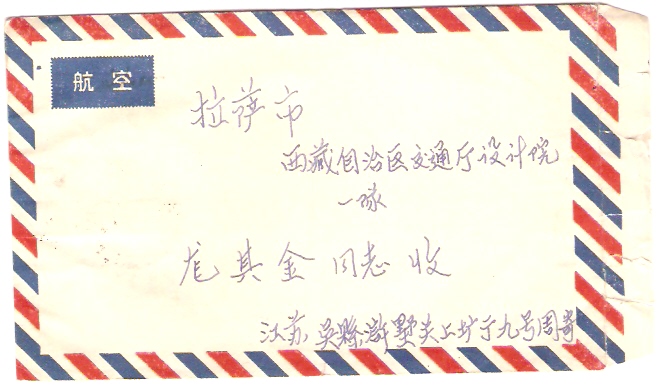 航空
拉萨市
西藏自治区交通厅设计院
一队
龙其金同志收
江苏吴縣浒墅关上圹下九号周寄